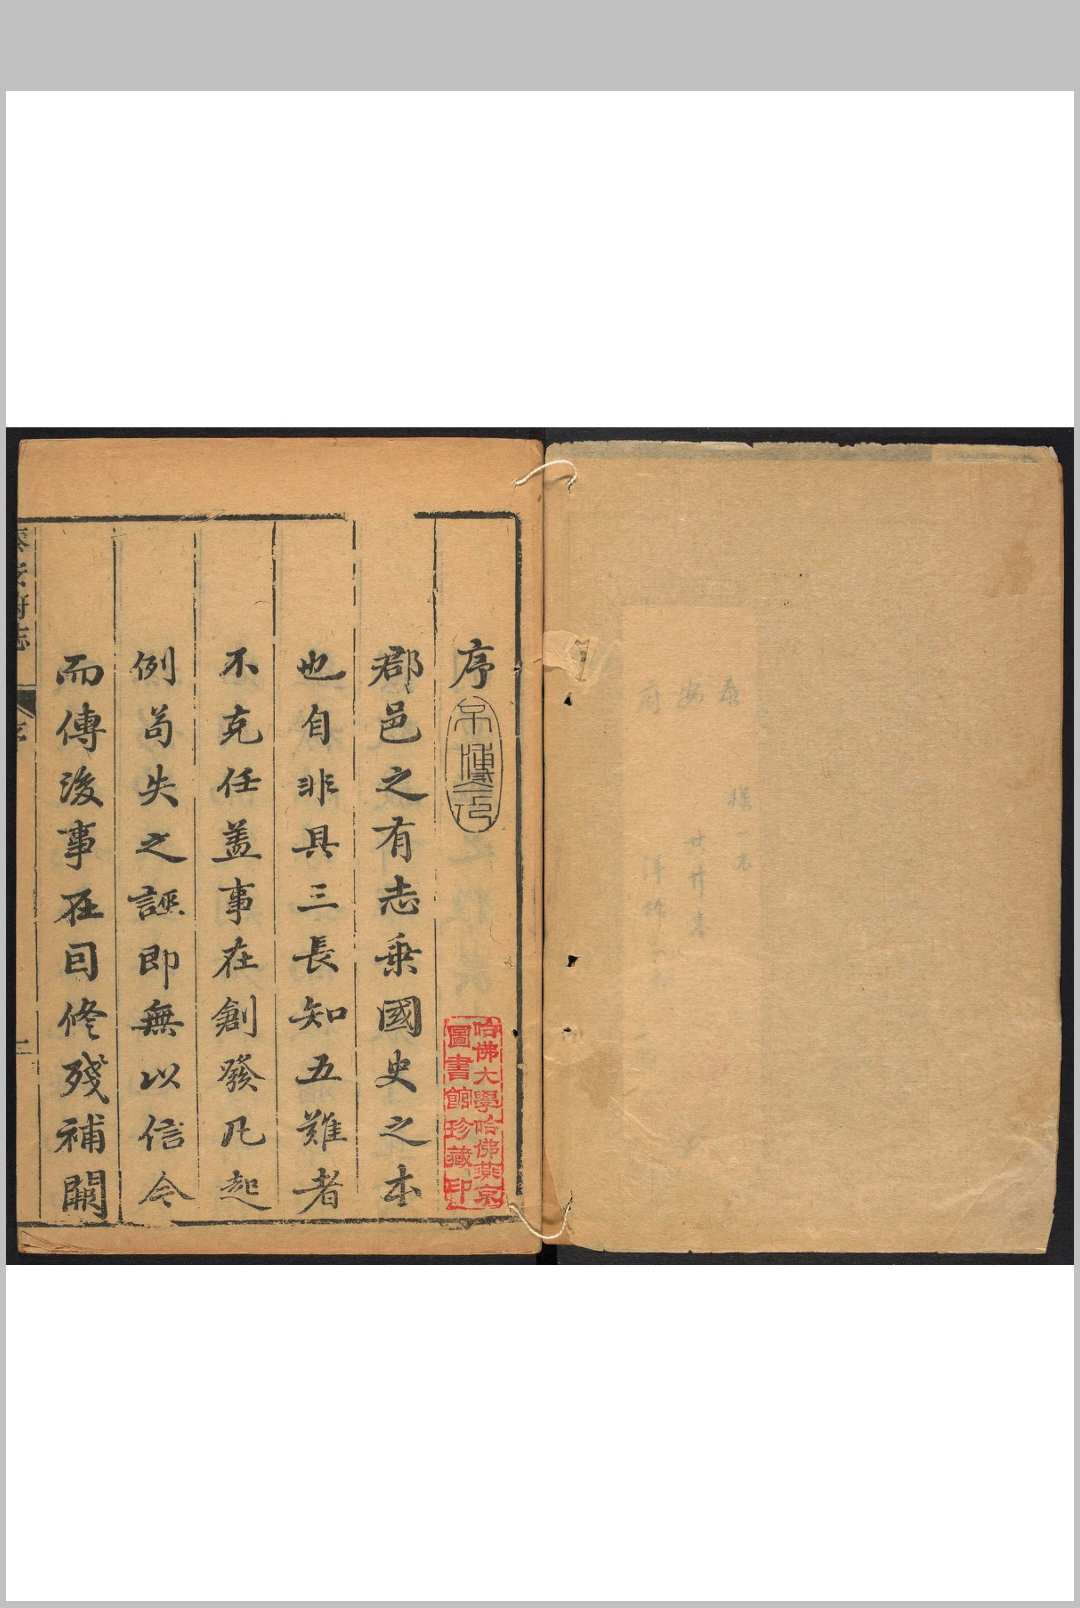 序
郡邑之有志乗國史之本
也自非具三長知五難者
不克任葢事在創發凡起
例苟失之誣即無以信今
而傳後事在因修殘補闕
哈佛大學哈佛燕京
圖書館珍藏印
泰安府志
序
泰安府